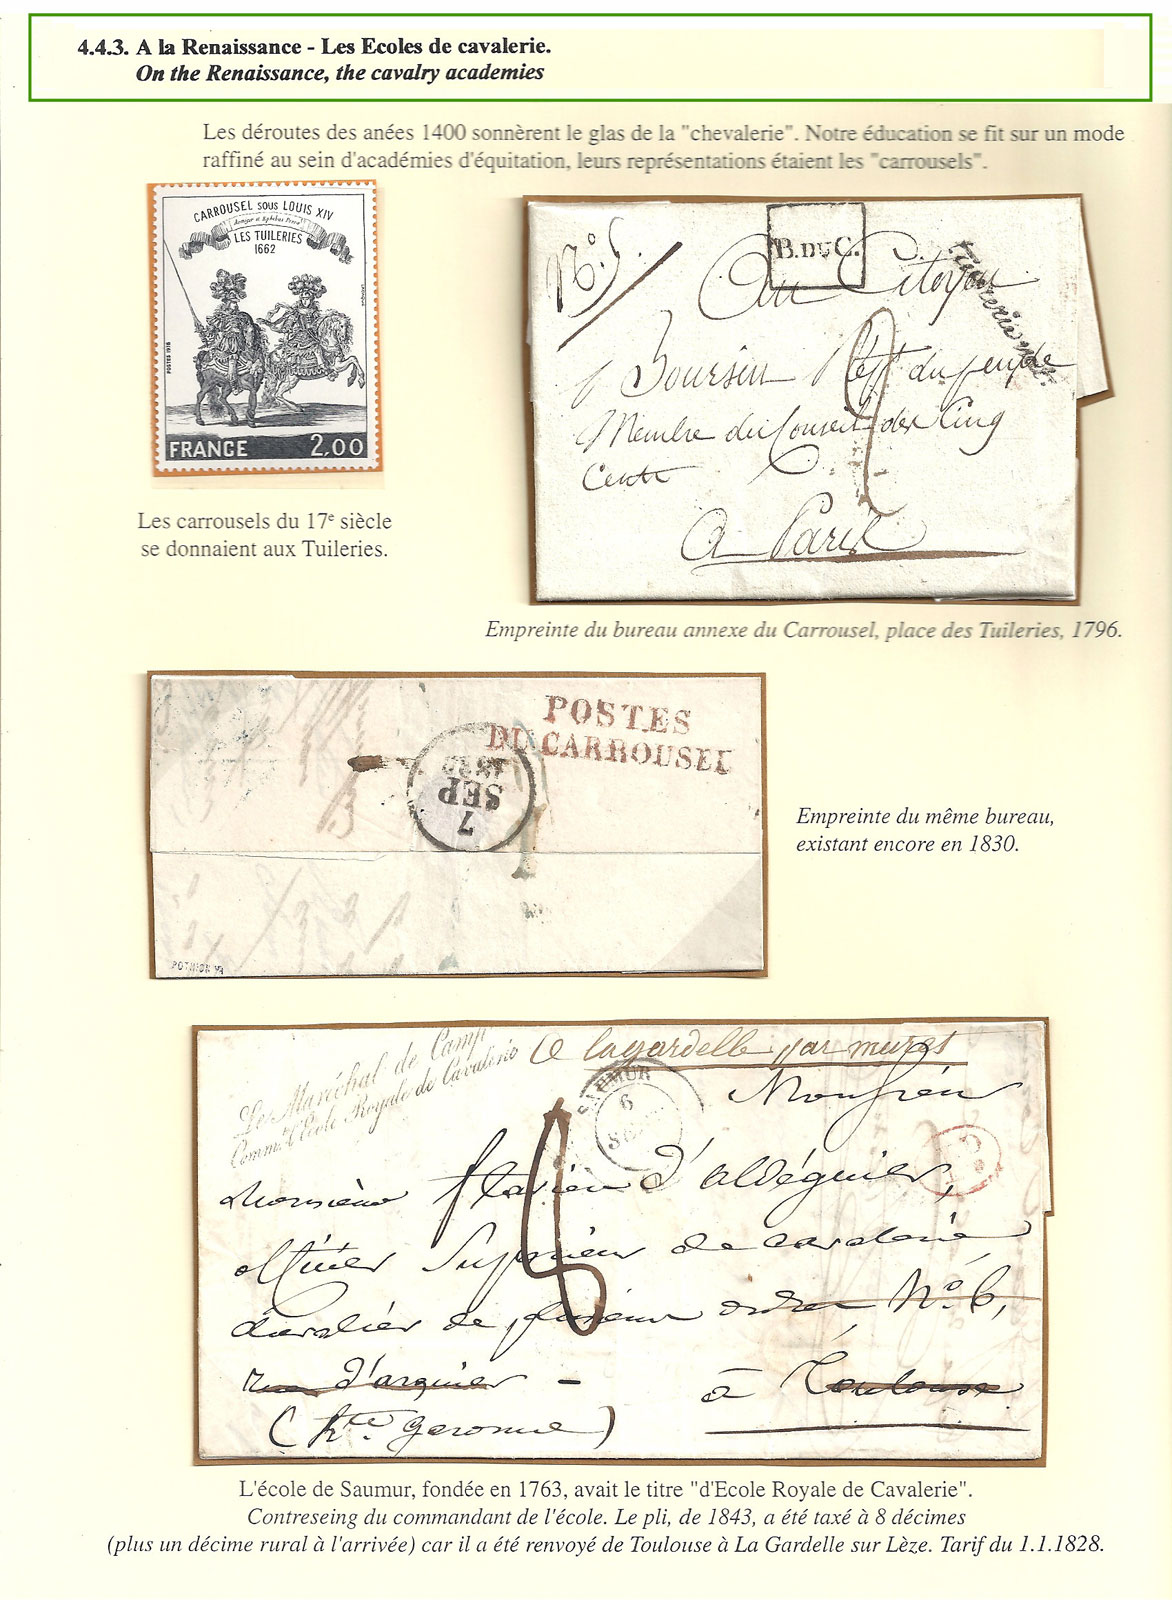 4.4.3. A la Renaissance - Les Ecoles de cavalerie.
On the Renaissance, the cavalry academies
Les déroutes des anées 1400 sonnèrent le glas de la "chevalerie". Notre éducation se fit sur un mode
raffiné au sein d'académies d'équitation, leurs représentations étaient les "carrousels".
CARROUSEL SOUS LOUIS XIV
LES TUILERIES
1662
POSTES 1978
FRANCE 2,00
Les carrousels du 17e siècle
se donnaient aux Tuileries.
No. 5.
B. DU C.
Au Citoyen
Boursin Rept du peuple
Membre du Conseil des Cinq
Cents
A Paris
Empreinte du bureau annexe du Carrousel, place des Tuileries, 1796.
POSTES
DU CARROUSEL
7
SEP
POTHION
Empreinte du même bureau,
existant encore en 1830.
Le Maréchal de Camp
Commt. l'Ecole Royale de Cavalerie
à lagardelle par murets
SAUMUR
6
Monsieur
Monsieur flavien d'aldéguier,
officier Supérieur de cavalerie
chevalier de plusieurs ordres No. 6,
rue d'arquier -
à Toulouse
(hte. garonne)
L'école de Saumur, fondée en 1763, avait le titre "d'Ecole Royale de Cavalerie".
Contreseing du commandant de l'école. Le pli, de 1843, a été taxé à 8 décimes
(plus un décime rural à l'arrivée) car il a été renvoyé de Toulouse à La Gardelle sur Lèze. Tarif du 1.1.1828.